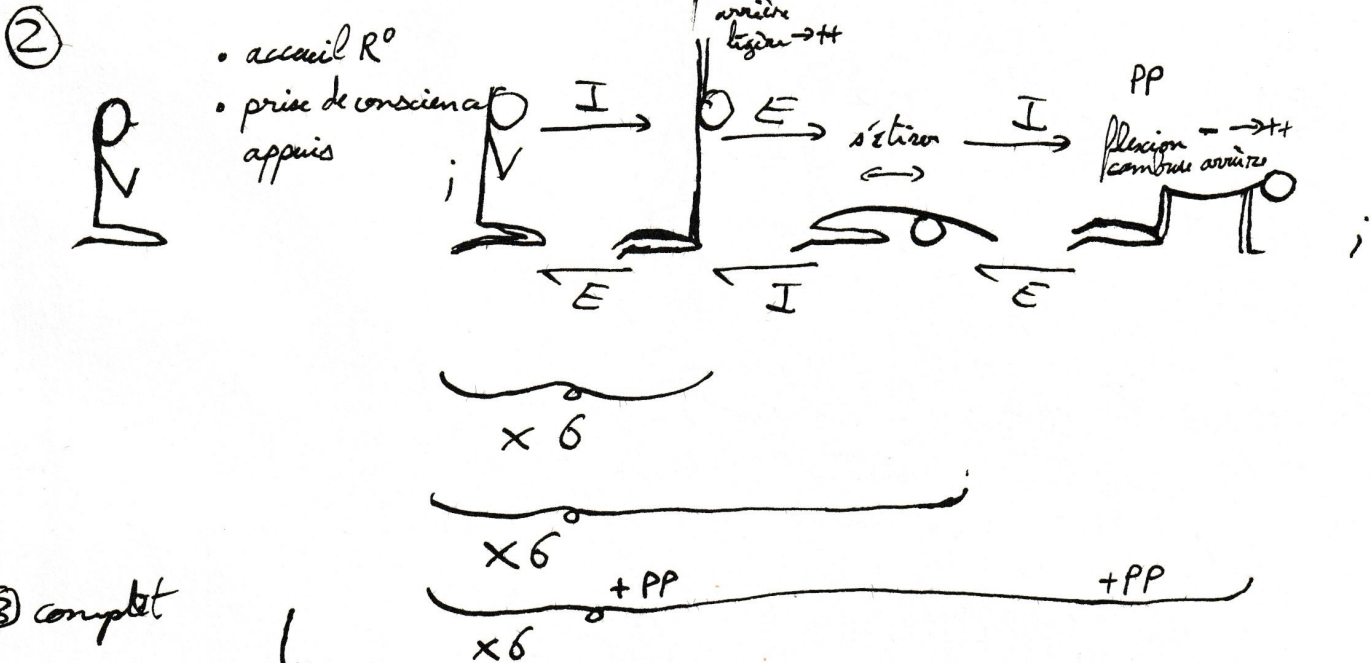 ②
• accueil R°
• prise de conscience
appuis
;
I
E
arrière
légère → ++
E
I
s'étirer
↔
I
E
PP
flexion - → ++
cambrure arrière
;
× 6
× 6
+ PP
+ PP
× 6
③ complet